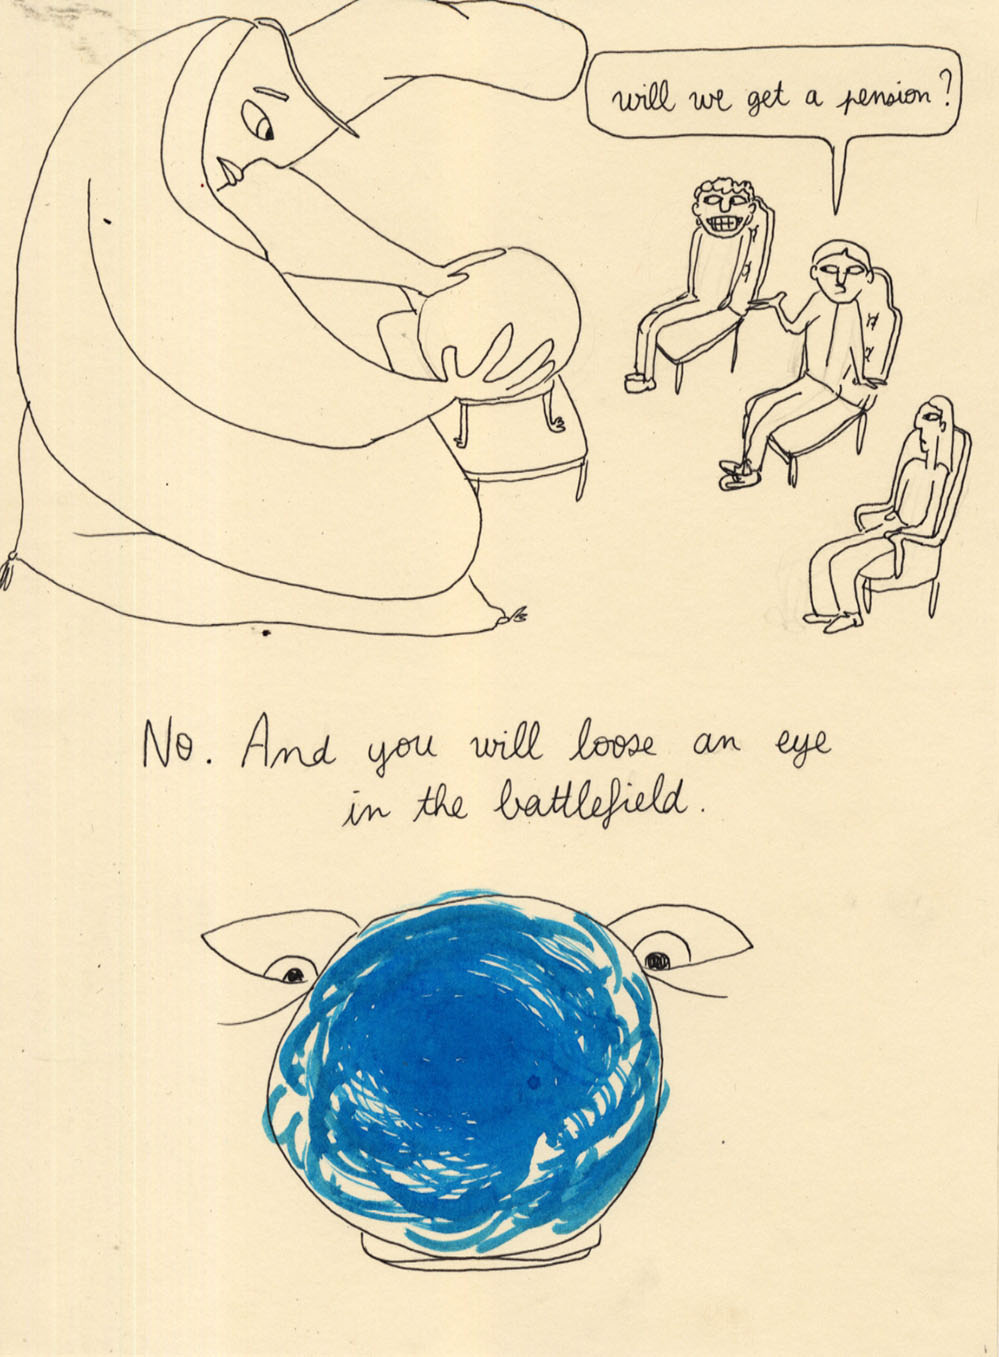 will we get a pension?
No. And you will loose an eye
in the battlefield.